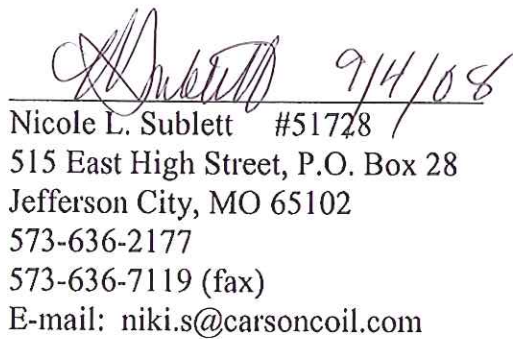 NSublett 9/4/08
Nicole L. Sublett #51728
515 East High Street, P.O. Box 28
Jefferson City, MO 65102
573-636-2177
573-636-7119 (fax)
E-mail: niki.s@carsoncoil.com